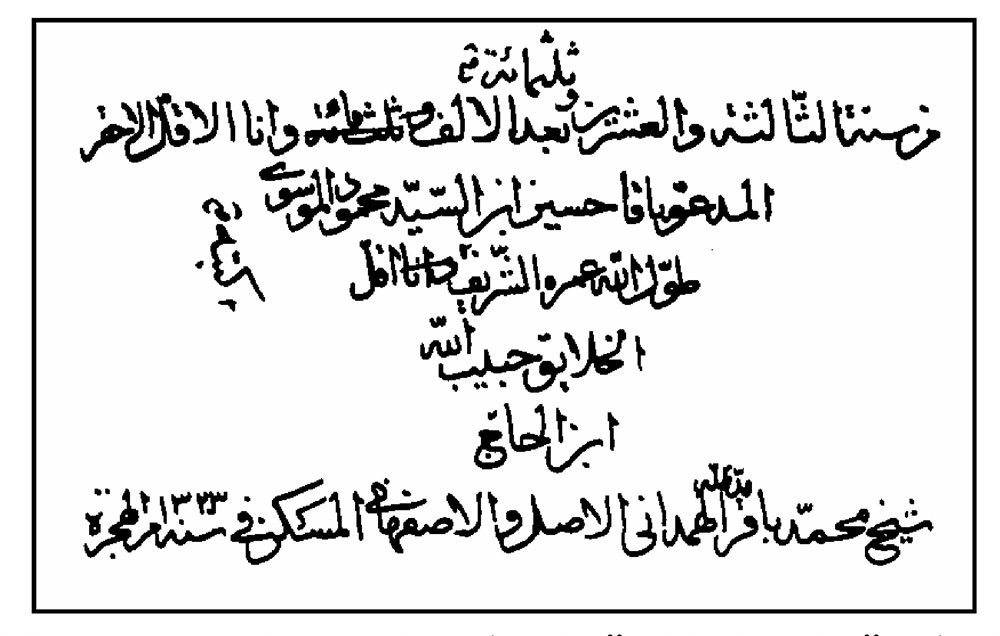 وثلثمائة
من سنة الثالثة والعشرين بعد الالف وثلثمائة وانا الاقل الاحقر
المدعو باقا حسين ابن السيد محمود الموسوي
طول الله عمره الشريف وانا اقل
الخلايق حبيب الله
ابن الحاج
شيخ محمد باقر الهمداني الاصل والاصفهاني المسكن في سنة ١٣٢٣ من الهجرة